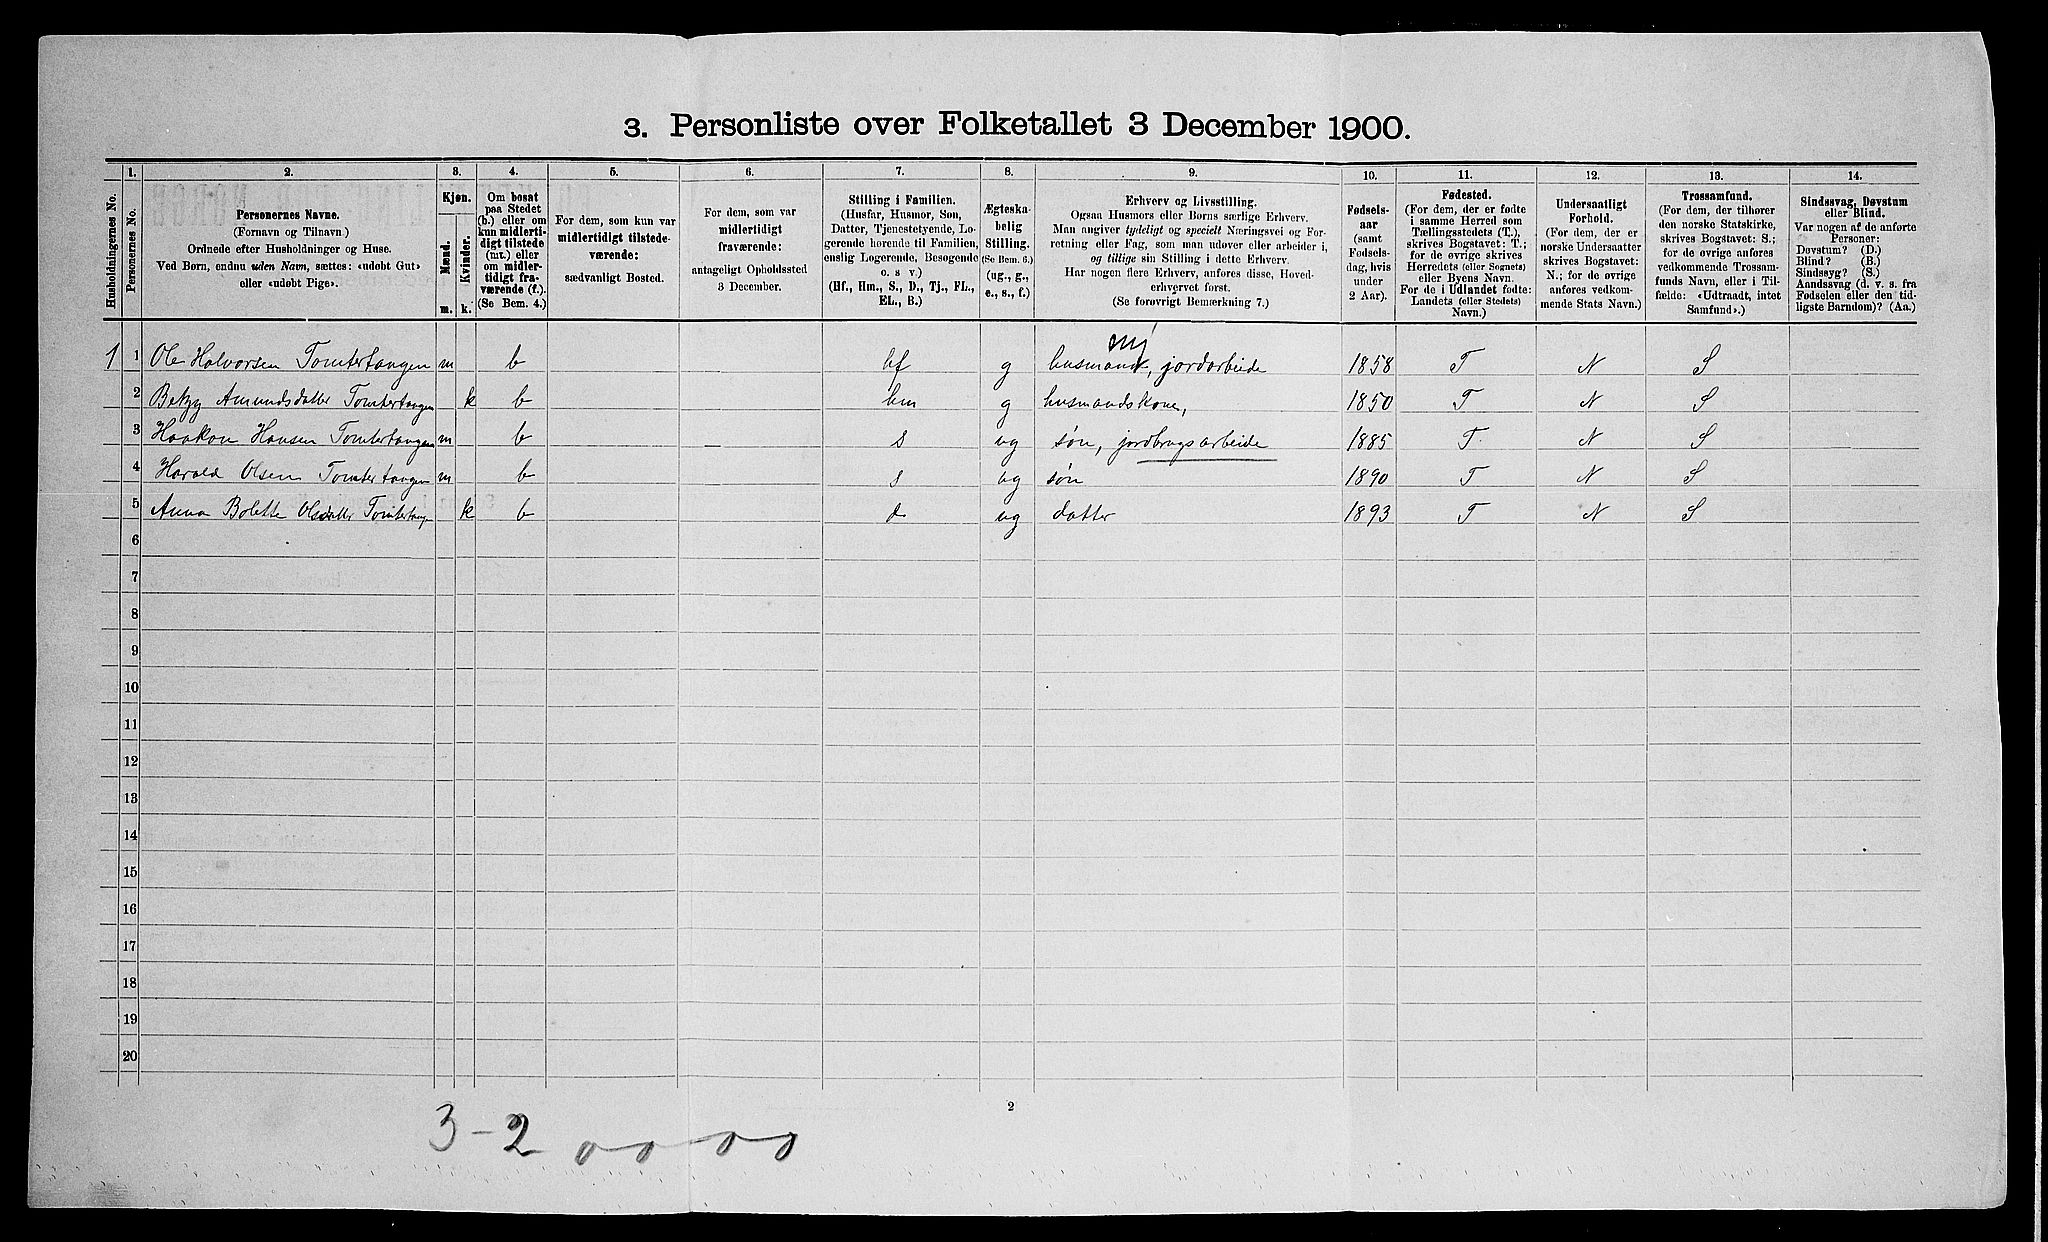 3. Personliste over Folketallet 3 December 1900.
1. 2. 3. 4. 5. 6. 7. 8. 9. 10. 11. 12. 13. 14.
Husholdningernes No.
Personernes No.
Personernes Navne.
(Fornavn og Tilnavn.)
Ordnede efter Husholdninger og Huse.
Ved Børn, endnu uden Navn, sættes: «udøbt Gut»
eller «udøbt Pige».
Kjøn.
Mænd.
Kvinder.
m. k.
Om bosat
paa Stedet
(b.) eller om
kun midlerti-
digt tilstede
(mt.) eller
om midler-
tidigt fra-
værende (f.).
(Se Bem. 4.)
For dem, som kun var
midlertidigt tilstede-
værende:
sædvanligt Bosted.
For dem, som var
midlertidigt
fraværende:
antageligt Opholdssted
3 December.
Stilling i Familien.
(Husfar, Husmor, Søn,
Datter, Tjenestetyende, Lo-
gerende hørende til Familien,
enslig Logerende, Besøgende
o. s. v.)
(Hf., Hm., S., D., Tj., FL.,
EL., B.)
Ægteska-
belig
Stilling.
(Se Bem. 6.)
(ug., g.,
e., s., f.)
Erhverv og Livsstilling.
Ogsaa Husmors eller Børns særlige Erhverv.
Man angiver tydeligt og specielt Næringsvei og For-
retning eller Fag, som man udøver eller arbeider i,
og tillige sin Stilling i dette Erhverv.
Har nogen flere Erhverv, anføres disse, Hoved-
erhvervet først.
(Se forøvrigt Bemærkning 7.)
Fødsels-
aar
(samt
Fødsels-
dag, hvis
under
2 Aar).
Fødested.
(For dem, der er fødte
i samme Herred som
Tællingsstedets (T.),
skrives Bogstavet: T.;
for de øvrige skrives
Herredets (eller Sognets)
eller Byens Navn.
For de i Udlandet fødte:
Landets (eller Stedets)
Navn.)
Undersaatligt
Forhold.
(For dem, der er
norske Undersaatter
skrives Bogstavet:
N.; for de øvrige
anføres vedkom-
mende Stats Navn.)
Trossamfund.
(For dem, der tilhører
den norske Statskirke,
skrives Bogstavet: S.;
for de øvrige anføres
vedkommende Trossam-
funds Navn, eller i Til-
fælde: «Udtraadt, intet
Samfund».)
Sindssvag, Døvstum
eller Blind.
Var nogen af de anførte
Personer:
Døvstum? (D.)
Blind? (B.)
Sindssyg? (S.)
Aandssvag (d. v. s. fra
Fødselen eller den tid-
ligste Barndom)? (Aa.)
1 1 Ole Halvorsen Tomtertangen m b hf g husmand, jordarbeide 1858 T N S
2 Betzy Amundsdatter Tomtertangen k b hm g husmandskone, 1850 T N S
3 Haakon Hansen Tomtertangen m b s ug søn, jordbrugsarbeide 1885 T. N S
4 Harald Olsen Tomtertangen m b s ug søn 1890 T N S
5 Anna Bolette Olsdatter Tomtertangen k b d ug datter 1893 T N S
6
7
8
9
10
11
12
13
14
15
16
17
18
19
20
2
3-2 00-00